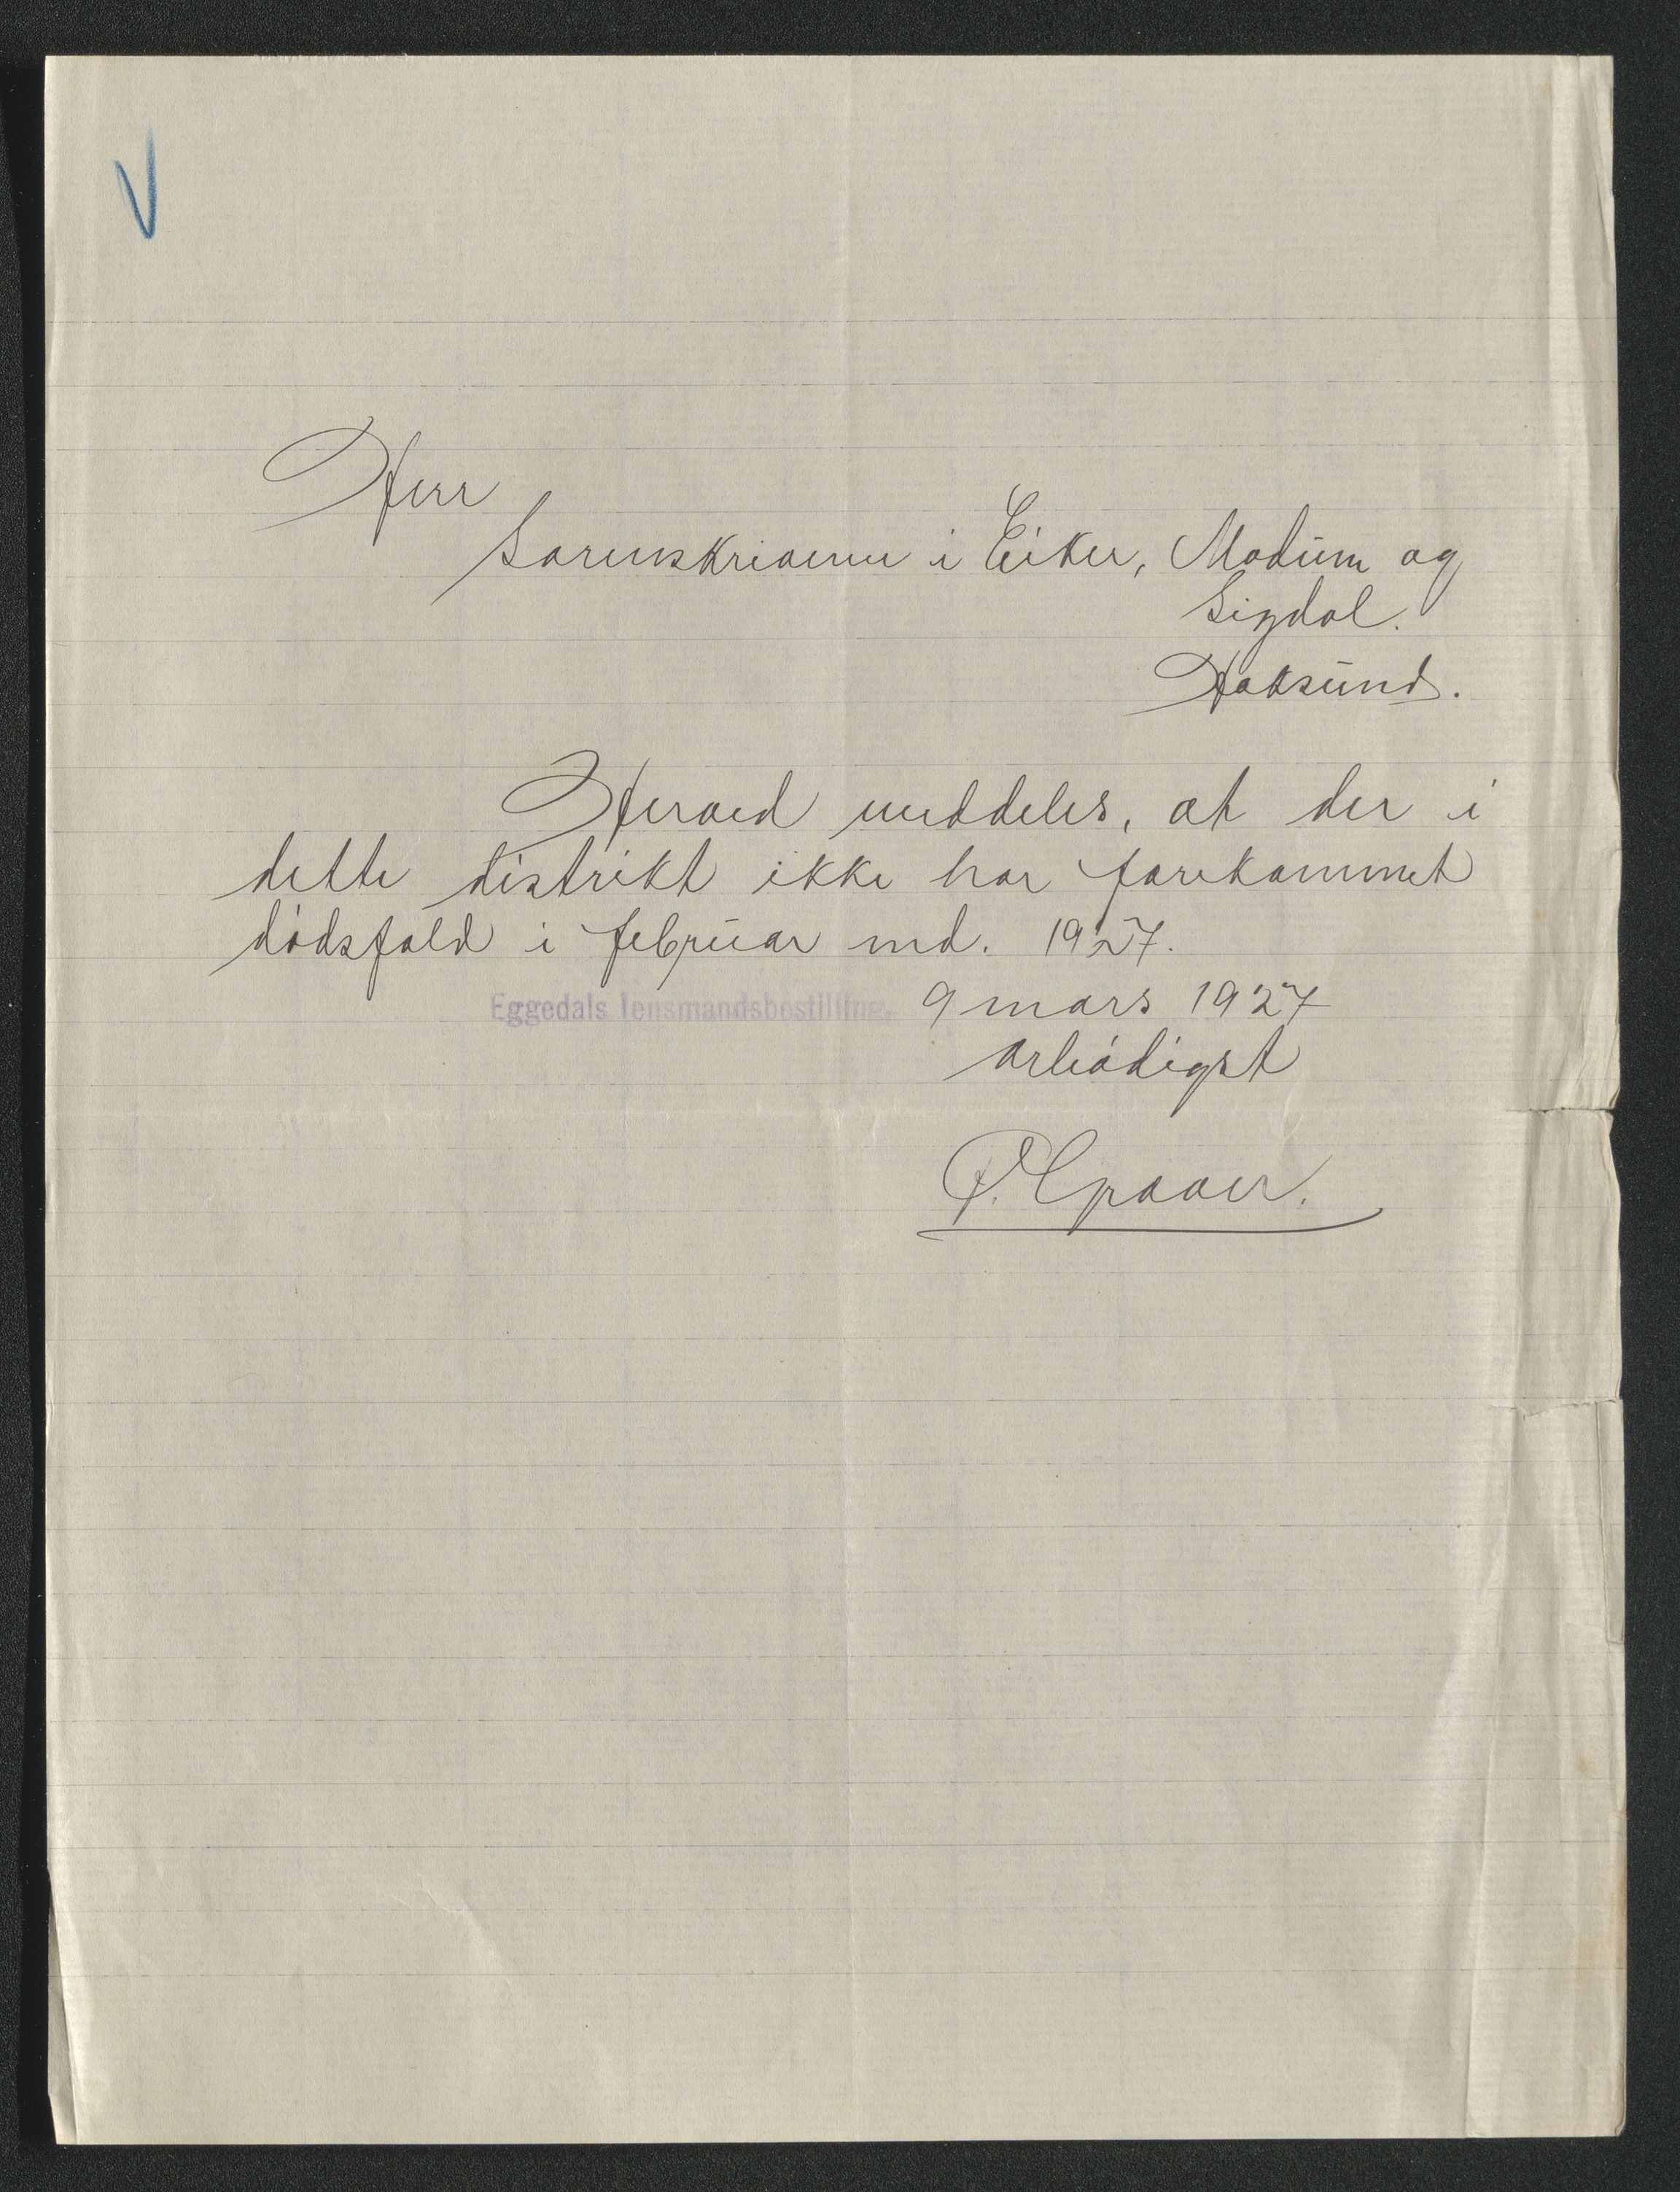 V
Herr
Sorenskriveren i Eiker, Modum og
Sigdal.
Haksund.
Herved meddeles, at der i
dette distrikt ikke har forekommet
dødsfald i februar md. 1927.
Eggedals lensmandsbestilling. 9 mars 1927
ærbødigst